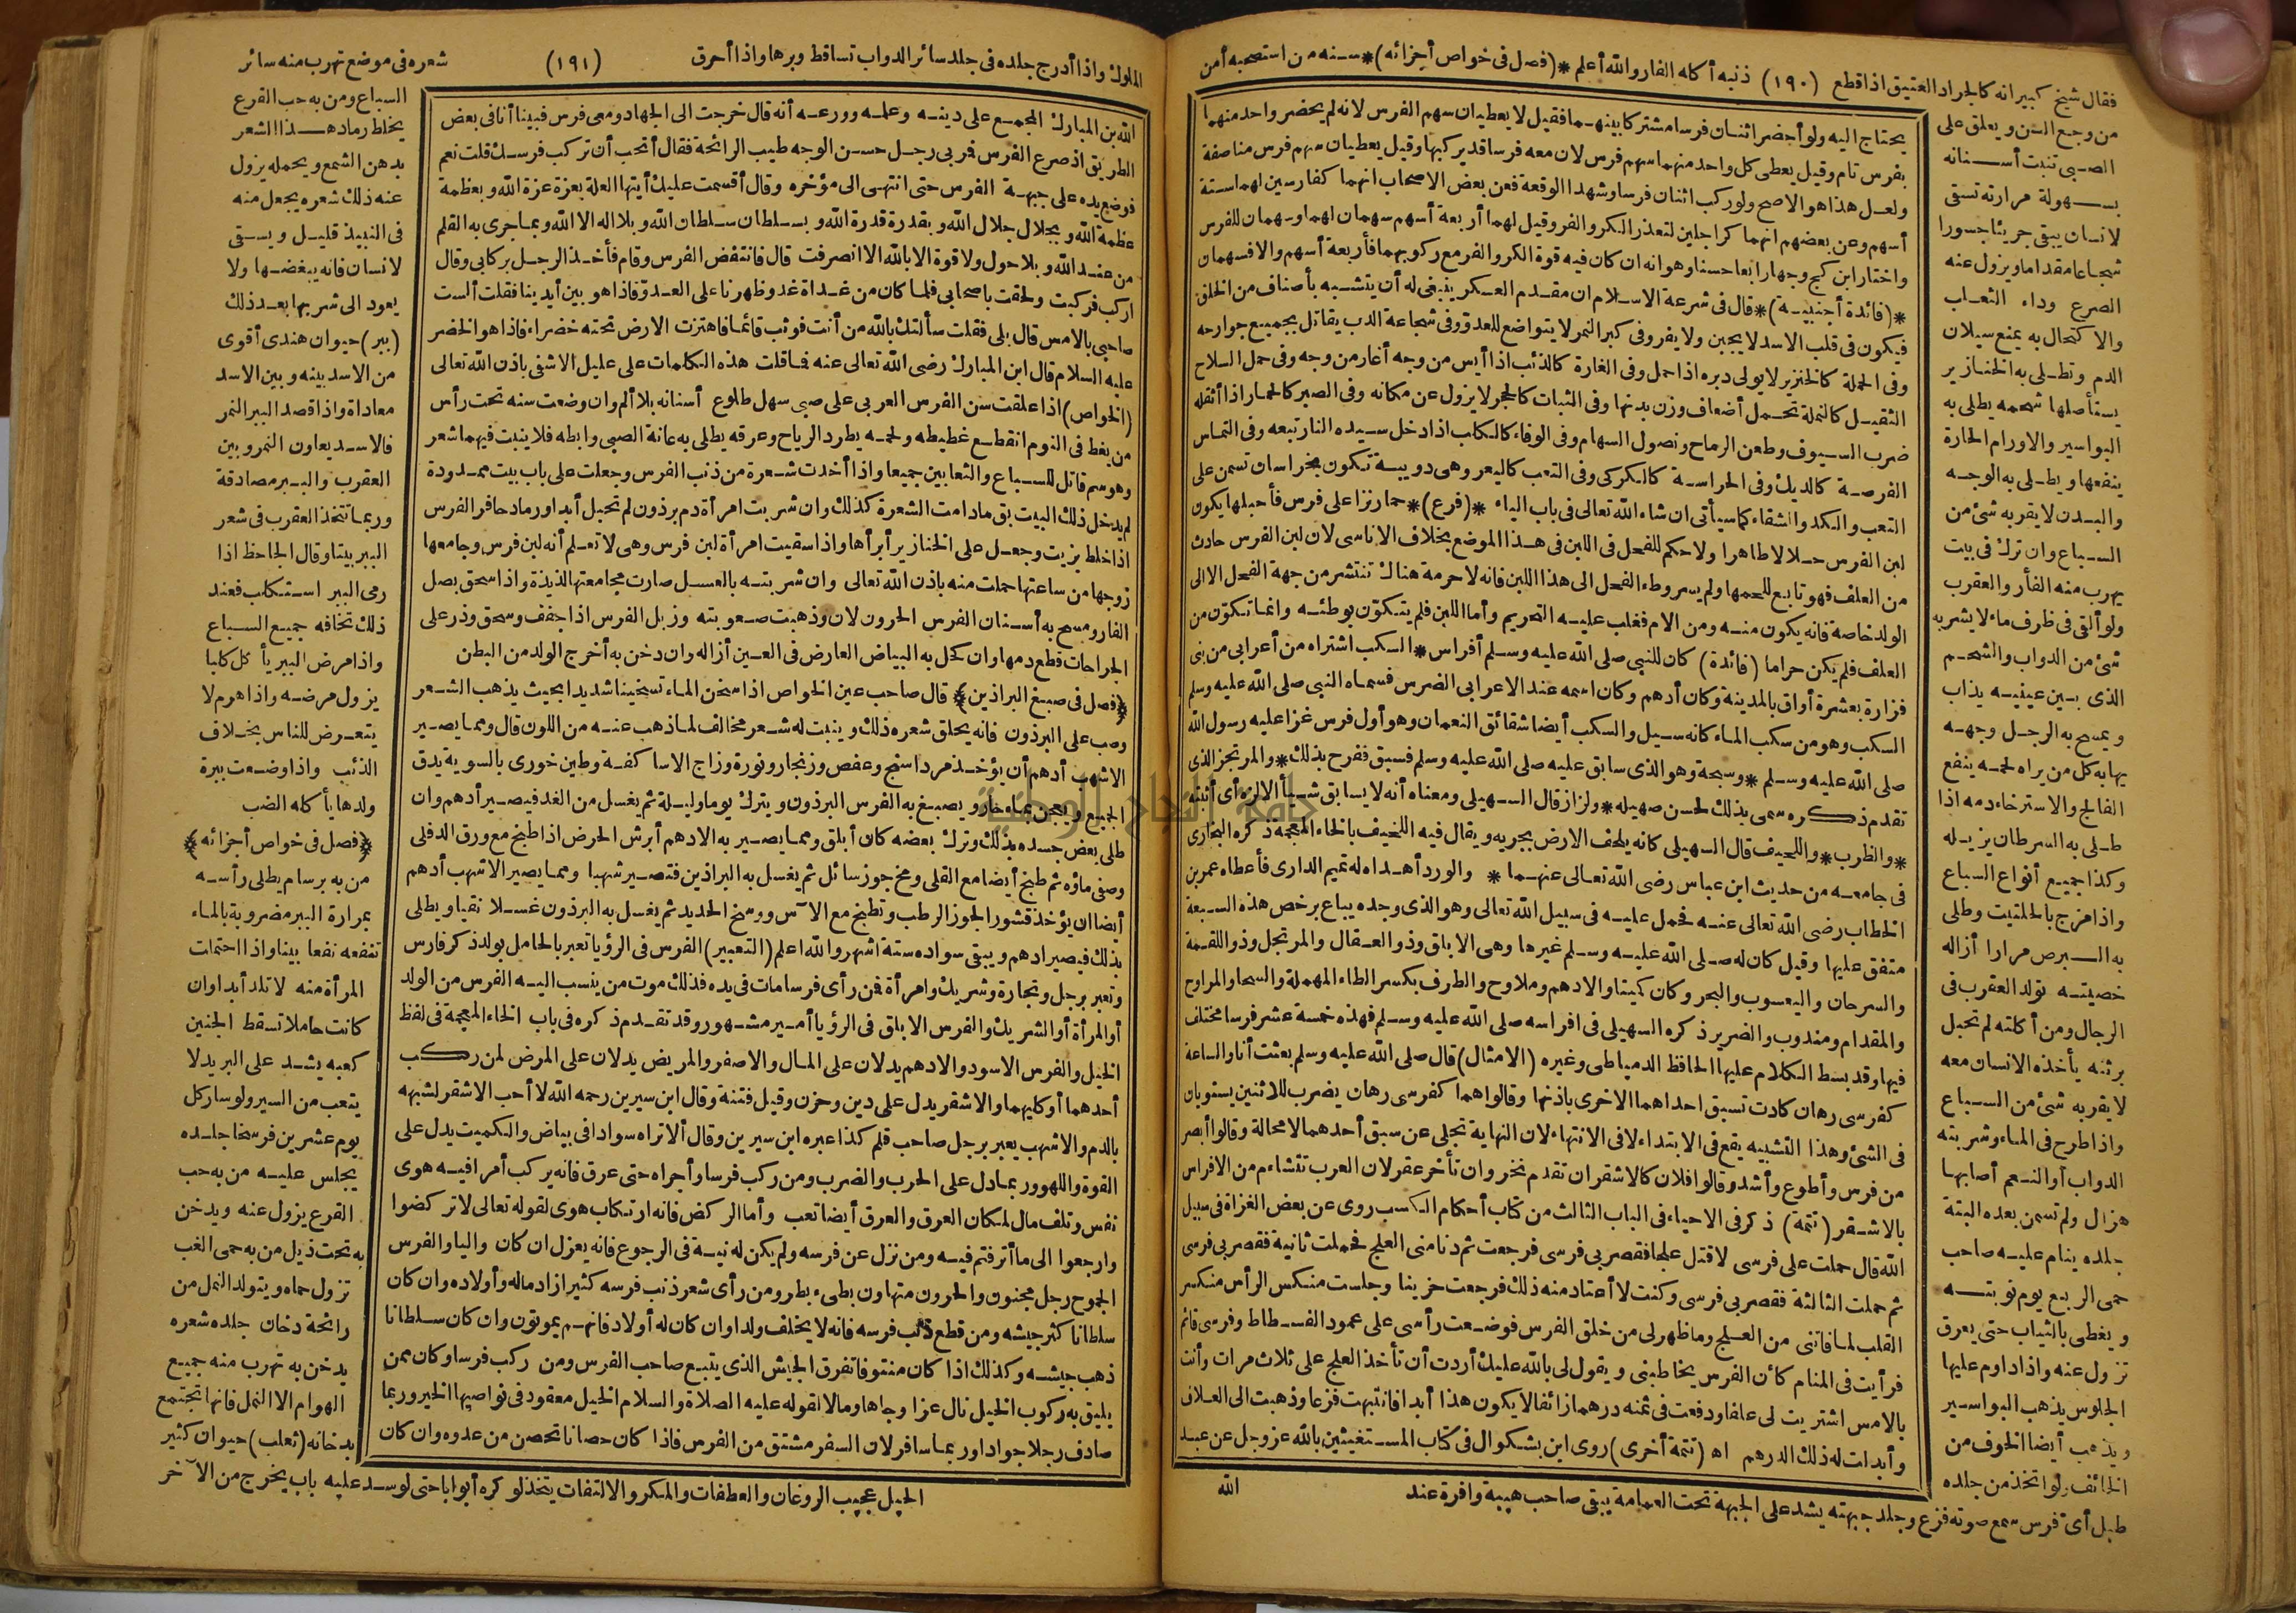 فقال شيخ كبير انه كالجراد العتيق اذا قطع (١٩٠) ذنبه أكله الفار والله أعلم *(فصل فى خواص أجزائه)* سنه من استصحبه أمن
من وجع السن ويعلق على
الصبى تنبت أسنانه
بسهولة مرارته تسقى
لانسان يبقى جريئا جسورا
شجاعا مقداما ويزول عنه
الصرع وداء الثعلب
والاكتحال به يمنع سيلان
الدم وتطلى به الخنازير
يستأصلها شحمه يطلى به
البواسير والاورام الحارة
ينفعها ويطلى به الوجه
والبدن لا يقربه شئ من
السباع وان ترك فى بيت
يهرب منه الفأر والعقرب
ولو ألقى فى ظرف ماء لا يشربه
شئ من الدواب والشحم
الذى بين عينيه يذاب
ويمسح به الرجل وجهه
يهابه كل من يراه لحمه ينفع
الفالج والاسترخاء دمه اذا
طلى به السرطان يزيله
وكذا جميع أنواع السباع
واذا مزج بالحلتيت وطلى
به البرص مرارا أزاله
خصيته تولد العقرب فى
الرجال ومن أكلته لم تحبل
برثنه يأخذه الانسان معه
لا يقربه شئ من السباع
واذا طرح فى الماء وشربته
الدواب أو النعم أصابها
هزال ولم تسمن بعده البتة
جلده ينام عليه صاحب
حمى الربع يوم نوبته
ويغطى بالثياب حتى يعرق
تزول عنه واذا داوم عليها
الجلوس يذهب البواسير
ويذهب أيضا الخوف من
الخائف ولو اتخذ من جلده
طبل أى فرس سمع صوته فزع وجلد جبهته يشد على الجبهة تحت العمامة يبقى صاحب هيبة وافرة عند
يحتاج اليه ولو أحضر اثنان فرسا مشتركا بينهما فقيل لا يعطيان سهم الفرس لانه لم يحضر واحد منهما
بفرس تام وقيل يعطى كل واحد منهما سهم فرس لان معه فرسا قد يركبها وقيل يعطيان سهم فرس مناصفة
ولعل هذا هو الاصح ولو ركب اثنان فرسا وشهدا الوقعة فعن بعض الاصحاب انهما كفارسين لهما ستة
أسهم وعن بعضهم انهما كراجلين لتعذر الكر والفر وقيل لهما أربعة أسهم سهمان لهما وسهمان للفرس
واختار ابن كج وجها رابعا حسنا وهو انه ان كان فيه قوة الكر والفر مع ركوبهما فأربعة أسهم والا فسهمان
*(فائدة أجنبية)* قال فى شرعة الاسلام ان مقدم العسكر ينبغى له أن يتشبه بأصناف من الخلق
فيكون فى قلب الاسد لا يجبن ولا يفر وفى كبر النمر لا يتواضع للعدو وفى شجاعة الدب يقاتل بجميع جوارحه
وفى الحملة كالخنزير لا يولى دبره اذا حمل وفى الغارة كالذئب اذا أيس من وجه أغار من وجه وفى حمل السلاح
الثقيل كالنملة تحمل أضعاف وزن بدنها وفى الثبات كالحجر لا يزول عن مكانه وفى الصبر كالحمار اذا أثقله
ضرب السيوف وطعن الرماح ونصول السهام وفى الوفاء كالكلب اذا دخل سيده النار تبعه وفى التماس
الفرصة كالديك وفى الحراسة كالكركى وفى التعب كاليعر وهى دويبة تكون بخراسان تسمن على
التعب والكد والشقاء كما سيأتى ان شاء الله تعالى فى باب الياء *(فرع)* حمار نزا على فرس فأحبلها يكون
لبن الفرس حلالا طاهرا ولا حكم للفحل فى اللبن فى هذا الموضع بخلاف الاناسى لان لبن الفرس حادث
من العلف فهو تابع للحمها ولم يسر وطء الفحل الى هذا اللبن فانه لا حرمة هناك تنتشر من جهة الفحل الا الى
الولد خاصة فانه يكون منه ومن الام فغلب عليه التحريم وأما اللبن فلم يتكون بوطئه وانما تكون من
العلف فلم يكن حراما (فائدة) كان للنبى صلى الله عليه وسلم أفراس * السكب اشتراه من أعرابى من بنى
فزارة بعشرة أواق بالمدينة وكان أدهم وكان اسمه عند الاعرابى الضرس فسماه النبى صلى الله عليه وسلم
السكب وهو من سكب الماء كانه سيل والسكب أيضا شقائق النعمان وهو أول فرس غزا عليه رسول الله
صلى الله عليه وسلم * وسبحة وهو الذى سابق عليه صلى الله عليه وسلم فسبق ففرح بذلك * والمرتجز الذى
تقدم ذكره سمى بذلك لحسن صهيله * ولزاز قال السهيلى ومعناه أنه لا يسابق شيأ الا لزه أى أثبته
*والظرب * واللحيف قال السهيلى كانه يلحف الارض بجريه ويقال فيه اللخيف بالخاء المعجمة ذكره البخارى
فى جامعه من حديث ابن عباس رضى الله تعالى عنهما * والورد أهداه له تميم الدارى فأعطاه عمر بن
الخطاب رضى الله تعالى عنه فحمل عليه فى سبيل الله تعالى وهو الذى وجده يباع برخص هذه السبعة
متفق عليها وقيل كان له صلى الله عليه وسلم غيرها وهى الابلق وذو العقال والمرتجل وذو اللقمة
والسرحان واليعسوب والبحر وكان كميتا والادهم وملاوح والطرف بكسر الطاء المهملة والسحا والمراوح
والمقدام ومندوب والضرير ذكره السهيلى فى افراسه صلى الله عليه وسلم فهذه خمسة عشر فرسا مختلف
فيها وقد بسط الكلام عليها الحافظ الدمياطى وغيره (الامثال) قال صلى الله عليه وسلم بعثت أنا والساعة
كفرسى رهان كادت تسبق احداهما الاخرى باذنها وقالوا هما كفرسى رهان يضرب للاثنين يستويان
فى الشئ وهذا التشبيه يقع فى الابتداء لا فى الانتهاء لان النهاية تجلى عن سبق أحدهما لا محالة وقالوا أبصر
من فرس وأطوع وأشد وقالوا فلان كالاشقر ان تقدم نحر وان تأخر عقر لان العرب تتشاءم من الافراس
بالاشقر (تتمة) ذكر فى الاحياء فى الباب الثالث من كتاب أحكام الكسب روى عن بعض الغزاة فى سبيل
الله قال حملت على فرسى لاقتل علجا فقصر بى فرسى فرجعت ثم دنا منى العلج فحملت ثانية فقصر بى فرسى
ثم حملت الثالثة فقصر بى فرسى وكنت لا أعتاد منه ذلك فرجعت حزينا وجلست منكس الرأس منكسر
القلب لما فاتنى من العلج وما ظهر لى من خلق الفرس فوضعت رأسى على عمود الفسطاط وفرسى قائم
فرأيت فى المنام كأن الفرس يخاطبنى ويقول لى بالله عليك أردت أن تأخذ العلج على ثلاث مرات وأنت
بالامس اشتريت لى علفا ودفعت فى ثمنه درهما زائفا لا يكون هذا أبدا فانتبهت فزعا وذهبت الى العلاف
وأبدلت له ذلك الدرهم اه (تتمة أخرى) روى ابن بشكوال فى كتاب المستغيثين بالله عز وجل عن عبد
الله
الملوك واذا أدرج جلده فى جلد سائر الدواب تساقط وبرها واذا أحرق (١٩١) شعره فى موضع تهرب منه سائر
الله بن المبارك المجمع على دينه وعلمه وورعه أنه قال خرجت الى الجهاد ومعى فرس فبينا أنا فى بعض
الطريق اذ صرع الفرس فمر بى رجل حسن الوجه طيب الرائحة فقال أتحب أن تركب فرسك قلت نعم
فوضع يده على جبهة الفرس حتى انتهى الى مؤخره وقال أقسمت عليك أيتها العلة بعزة عزة الله وبعظمة
عظمة الله وبجلال جلال الله وبقدرة قدرة الله وبسلطان سلطان الله وبلا اله الا الله وبما جرى به القلم
من عند الله وبلا حول ولا قوة الا بالله الا انصرفت قال فانتفض الفرس وقام فأخذ الرجل بركابى وقال
اركب فركبت ولحقت باصحابى فلما كان من غداة غد وظهرنا على العدو فاذا هو بين أيدينا فقلت ألست
صاحبى بالامس قال بلى فقلت سألتك بالله من أنت فوثب قائما فاهتزت الارض تحته خضراء فاذا هو الخضر
عليه السلام قال ابن المبارك رضى الله تعالى عنه فما قلت هذه الكلمات على عليل الا شفى باذن الله تعالى
(الخواص) اذا علقت سن الفرس العربى على صبى سهل طلوع أسنانه بلا ألم وان وضعت سنه تحت رأس
من يغط فى النوم انقطع غطيطه ولحمه يطرد الرياح وعرقه يطلى به عانة الصبى وابطه فلا ينبت فيهما شعر
وهو سم قاتل للسباع والثعابين جميعا واذا أخذت شعرة من ذنب الفرس وجعلت على باب بيت ممدودة
لم يدخل ذلك البيت بق ما دامت الشعرة كذلك وان شربت امرأة دم برذون لم تحبل أبدا ورماد حافر الفرس
اذا خلط بزيت وجعل على الخنازير أبرأها واذا سقيت امرأة لبن فرس وهى لا تعلم أنه لبن فرس وجامعها
زوجها من ساعتها حملت منه باذن الله تعالى وان شربته بالعسل صارت مجامعتها لذيذة واذا سحق بصل
الفار ومسح به أسنان الفرس الحرون لان وذهبت صعوبته وزبل الفرس اذا جفف وسحق وذر على
الجراحات قطع دمها وان كحل به البياض العارض فى العين أزاله وان دخن به أخرج الولد من البطن
﴿فصل فى صبغ البراذين﴾ قال صاحب عين الخواص اذا سخن الماء تسخينا شديدا بحيث يذهب الشعر
وصب على البرذون فانه يحلق شعره ذلك وينبت له شعر مخالف لما ذهب عنه من اللون قال ومما يصير
الاشهب أدهم أن يؤخذ مرداسنج وعفص وزنجار ونورة وزاج الاساكفة وطين خورى بالسوية يدق
الجميع ويعجن بماء حار ويصبغ به الفرس البرذون ويترك يوما وليلة ثم يغسل من الغد فيصير أدهم وان
طلى بعض جسده بذلك وترك بعضه كان أبلق ومما يصير به الادهم أبرش الحرض اذا طبخ مع ورق الدفلى
وصفى ماؤه ثم طبخ أيضا مع القلى ومخ جوز سائل ثم يغسل به البراذين فتصير شهبا ومما يصير الاشهب أدهم
أيضا ان يؤخذ قشور الجوز الرطب وتطبخ مع الآس ووسخ الحديد ثم يغسل به البرذون غسلا نقيا ويطلى
بذلك فيصير ادهم ويبقى سواده ستة أشهر والله اعلم (التعبير) الفرس فى الرؤيا تعبر بالحامل بولد ذكر فارس
وتعبر برجل وتجارة وشريك وامرأة فمن رأى فرسا مات فى يده فذلك موت من ينسب اليه الفرس من الولد
أو المرأة أو الشريك والفرس الابلق فى الرؤيا أمير مشهور وقد تقدم ذكره فى باب الخاء المعجمة فى لفظ
الخيل والفرس الاسود والادهم يدلان على المال والاصفر والمريض يدلان على المرض لمن ركب
أحدهما أو كليهما والاشقر يدل على دين وحزن وقيل فتنة وقال ابن سيرين رحمه الله لا أحب الاشقر لشبهه
بالدم والاشهب يعبر برجل صاحب قلم كذا عبره ابن سيرين وقال ألا تراه سوادا فى بياض والكميت يدل على
القوة واللهو وربما دل على الحرب والضرب ومن ركب فرسا وأجراه حتى عرق فانه يركب أمرا فيه هوى
نفس وتلف مال لمكان العرق والعرق أيضا تعب وأما الركض فانه ارتكاب هوى لقوله تعالى لا تركضوا
وارجعوا الى ما أترفتم فيه ومن نزل عن فرسه ولم يكن له نية فى الرجوع فانه يعزل ان كان واليا والفرس
الجموح رجل مجنون والحرون متهاون بطىء بطر ومن رأى شعر ذنب فرسه كثيرا زاد ماله وأولاده وان كان
سلطانا كثر جيشه ومن قطع ذنب فرسه فانه لا يخلف ولدا وان كان له أولاد فانهم يموتون وان كان سلطانا
ذهب جيشه وكذلك اذا كان منتوفا تفرق الجيش الذى يتبع صاحب الفرس ومن ركب فرسا وكان ممن
يليق به ركوب الخيل نال عزا وجاها ومالا لقوله عليه الصلاة والسلام الخيل معقود فى نواصيها الخير وربما
صادف رجلا جوادا وربما سافر لان السفر مشتق من الفرس فاذا كان حصانا تحصن من عدوه وان كان
السباع ومن به حب القرع
يخلط رماد هذا الشعر
بدهن الشمع ويحمله يزول
عنه ذلك شعره يجعل منه
فى النبيذ قليل ويسقى
لانسان فانه يبغضها ولا
يعود الى شربها بعد ذلك
(ببر) حيوان هندى أقوى
من الاسد بينه وبين الاسد
معاداة واذا قصد الببر النمر
فالاسد يعاون النمر وبين
العقرب والببر مصادقة
وربما تتخذ العقرب فى شعر
الببر بيتا وقال الجاحظ اذا
رمى الببر استكلب فعند
ذلك تخافه جميع السباع
واذا مرض الببر يأكل كلبا
يزول مرضه واذا هرم لا
يتعرض للناس بخلاف
الذئب واذا وضعت ببرة
ولدها يأكله الضب
﴿فصل فى خواص أجزائه﴾
من به برسام يطلى رأسه
بمرارة الببر مضروبة بالماء
تنفعه نفعا بينا واذا احتملت
المرأة منه لا تلد أبدا وان
كانت حاملا تسقط الجنين
كعبه يشد على البريد لا
يتعب من السير ولو سار كل
يوم عشرين فرسخا جلده
يجلس عليه من به حب
القرع يزول عنه ويدخن
به تحت ذيل من به حمى الغب
تزول حماه ويتولد النمل من
رائحة دخان جلده شعره
يدخن به تهرب منه جميع
الهوام الا النمل فانها تجتمع
بدخانه (ثعلب) حيوان كثير
الحيل عجيب الروغان والعطفات والمكر والالتفات يتخذ لوكره أبوابا حتى لو سد عليه باب يخرج من الآخر
جامعة النجاح الوطنية